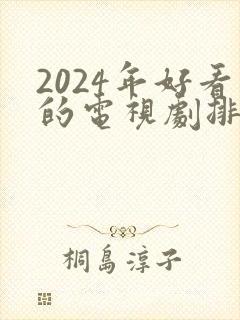 2024年好看
的電視劇排
桐島淳子